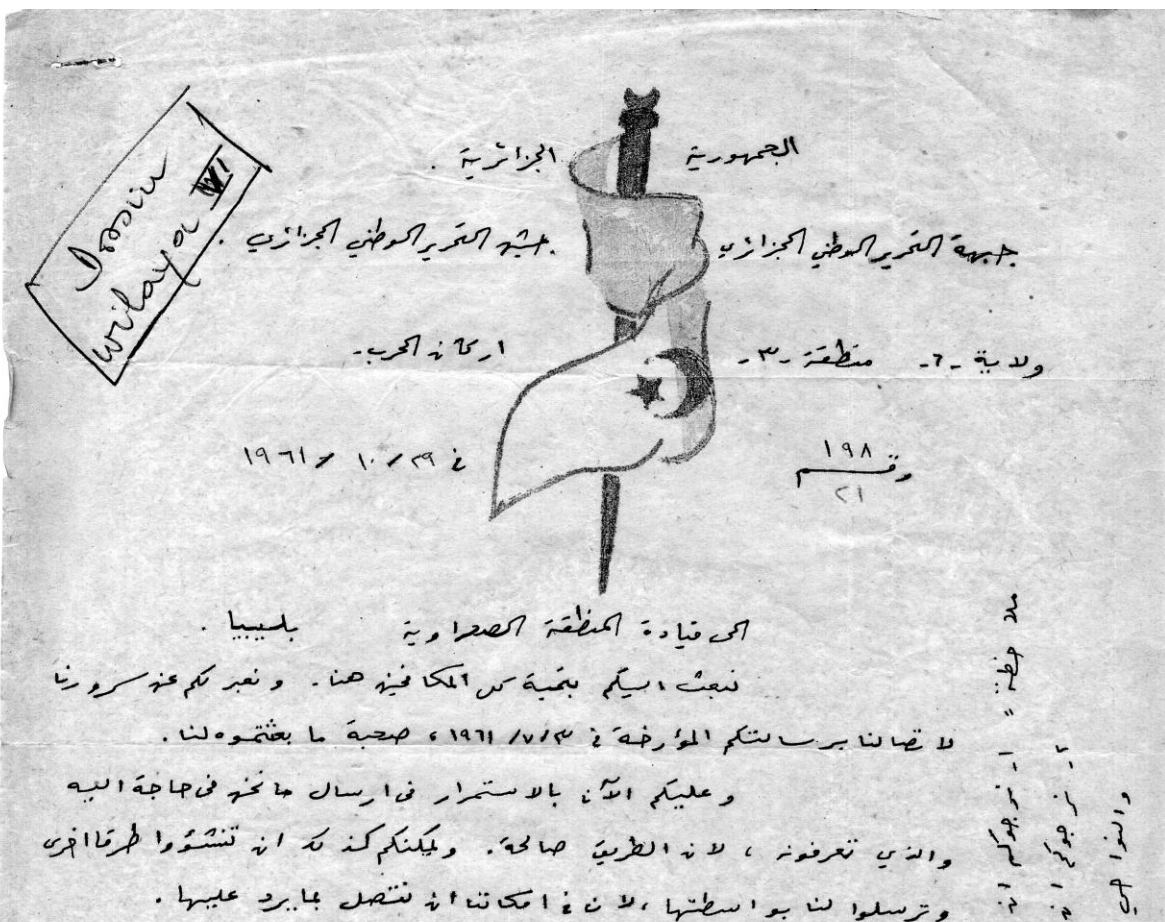 Dossier
wilaya VI
الجمهورية الجزائرية .
جبهة التحرير الوطني الجزائري . جيش التحرير الوطني الجزائري .
ولاية -٦- منطقة -٣- اركان الحرب -
رقم ١٩٨
٢١
في ٢٩ / ١٠ / ١٩٦١
الى قيادة المنطقة الصحراوية بليبيا .
نبعث اليكم بتحية كل المكافحين هنا . و نعبر لكم عن سرورنا
لاتصالنا برسالتكم المؤرخة في ٣/٧/١٩٦١ ، صحبة ما بعثتموه لنا .
وعليكم الآن بالاستمرار في ارسال ما نحن في حاجة اليه
والذي تعرفونه ، لان الطريق صالحة . ويمكنكم كذلك ان تنشئوا طرقا اخرى
وترسلوا لنا بواسطتها ، لان في امكاننا ان نتصل بما يرد عليها .
ملاحظة " ١- نرجوكم ان
٢- نرجوكم